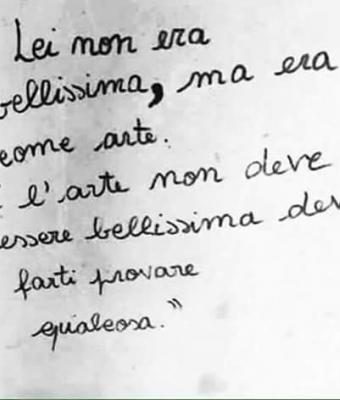 Lei non era
bellissima, ma era
come arte.
E l'arte non deve
essere bellissima dev
farti provare
qualcosa."